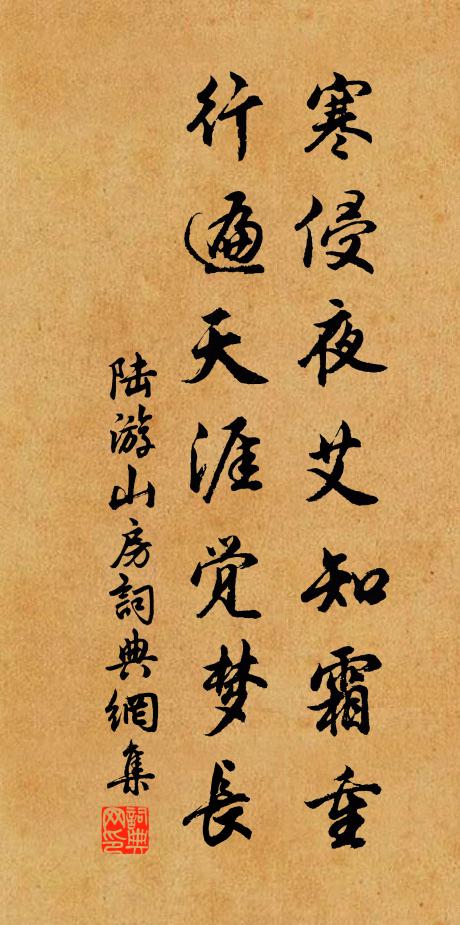 寒侵夜艾知霜重
行遍天涯觉梦長
陆游山房詞典網集
詞典网印